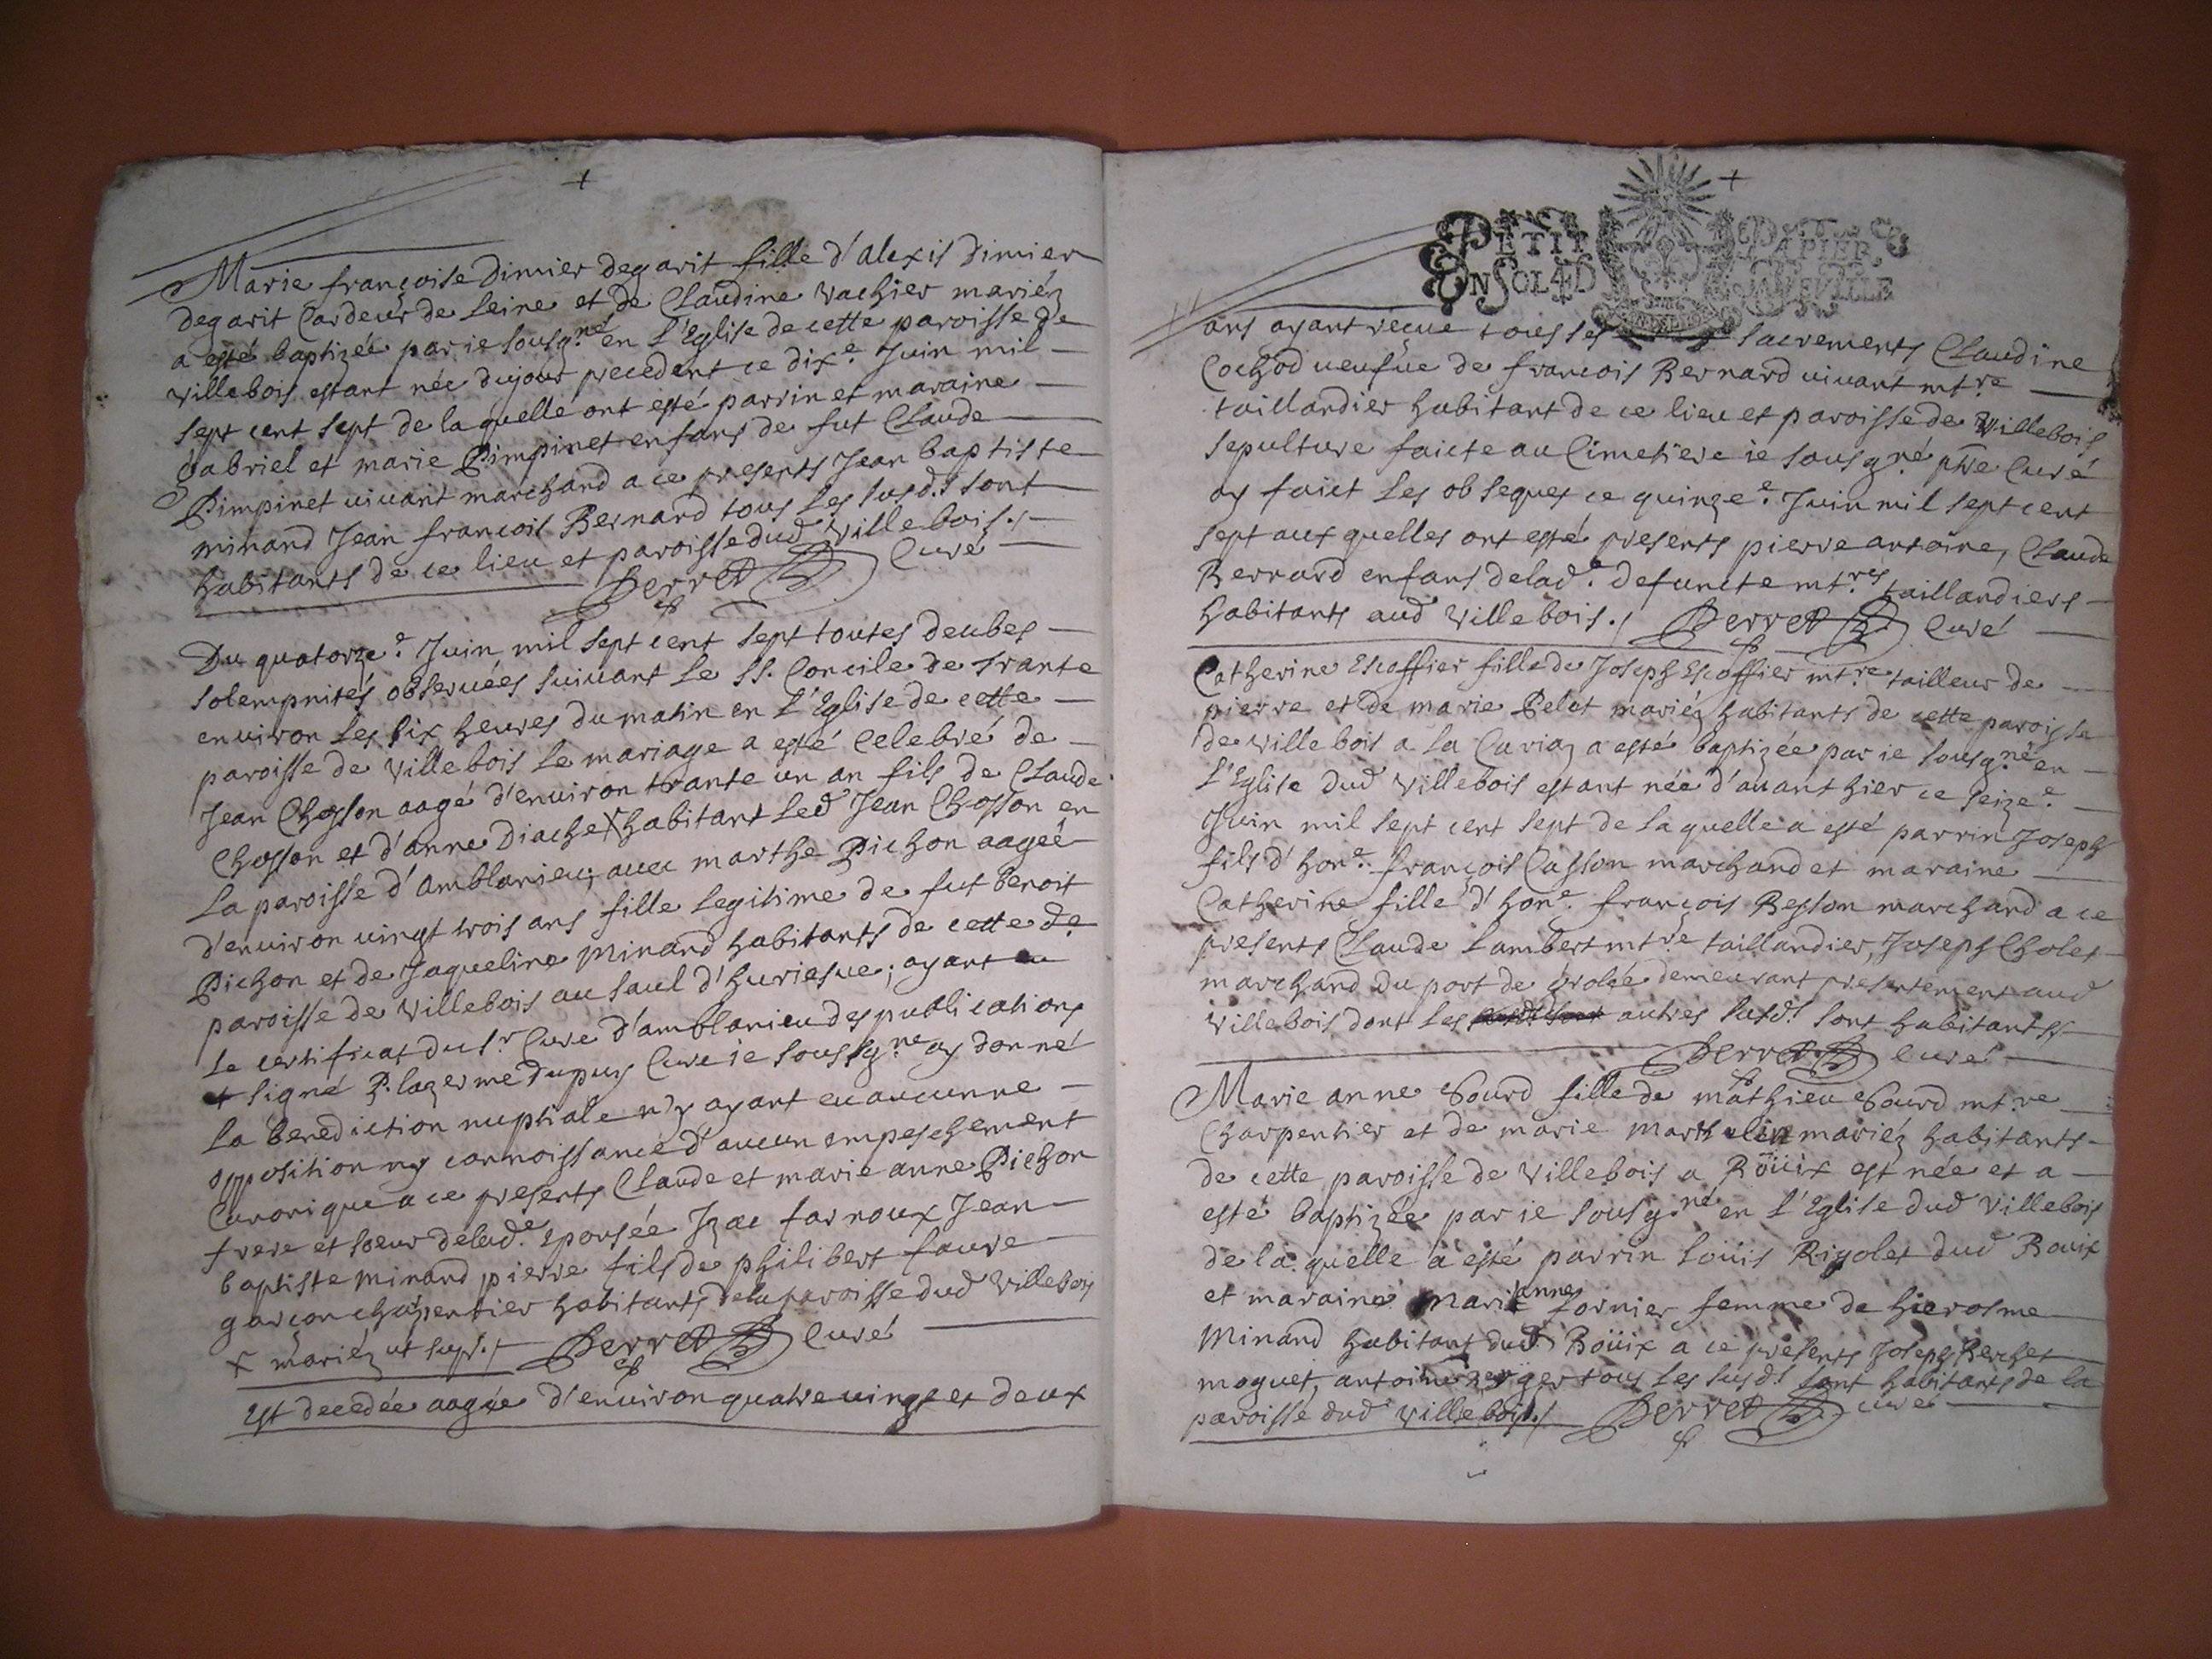 +
Marie françoise Dimier degarit fille d'alexis Dimier
degarit Cardeur de Leine et de Claudine Vachier mariéz
a esté baptizée par ie sousg.né en l'Eglise de cette paroisse de
villebois estant née dujour precedent ce dix.e Juin mil
sept cent sept de laquelle ont esté parrin et maraine
Gabriel et marie Pimpinet enfans de fut Claude
Pimpinet vivant marchand a ce presents Jean baptiste
minand Jean françois Bernard tous les susd.s sont
habitants de ce lieu et paroisse dud villebois./
Perret Curé
Du quatorze.e Juin mil sept cent sept toutes deubes
solempnités observées suivant le SS. Concile de trante
environ les six heures du matin en l'Eglise de cette
paroisse de villebois le mariage a esté Celebré de
Jean Chosson aagé d'environ trante un an fils de Claude
Chosson et d'anne Diache X habitant led Jean Chosson en
La paroisse d'amblanieu; avec marthe Pichon aagée
d'environ vingt trois ans fille legitime de fut benoit
Pichon et de Jaqueline Minand habitants de cette de
paroisse de villebois au saul d'huriesue; ayant eu
le certificat du S.r Curé d'amblanieu des publications
et signé P. lagerme Dupuy Curé ie soussg.né ay donné
la benediction nuptiale n'y ayant eu aucunne
opposition ny connoissance d'aucun empeschement
Canonique a ce presents Claude et marie anne Pichon
frere et soeur delad.e epousée Izac farnoux Jean
baptiste Minand pierre fils de philibert faure
garçon charpentier habitants dela paroisse dud villebois
X mariéz ut sup./ Perret Curé
est decedée aagée d'environ quatre vingt et deux
+
PETIT PAPIER,
EN SOL 4D FEVILLE
ans ayant reçue tous ses sacrements Claudine
Cochod veufue de françois Bernard vivant mt.re
taillandier habitant de ce lieu et paroisse de villebois
sepulture faicte au Cimetiere ie sousg.né ptre Curé
ay faict les obseques ce quinze.e Juin mil sept cent
sept aux quelles ont esté presents pierre antoine, Claude
Bernard enfans delad.e defuncte mt.res taillandiers
habitants aud villebois./ Perret Curé
Catherine Escoffier fille de Joseph Escoffier mt.re tailleur de
pierre et de marie Pelot mariéz habitants de cette paroisse
de villebois a la Cariaz a esté baptizée par ie sousg.né en
l'Eglise dud villebois estant née d'avant hier ce seize.e
Juin mil sept cent sept de laquelle a esté parrin Joseph
fils d'hon.e françois Casson marchand et maraine
Catherine fille d'hon.e françois Besson marchand a ce
presents Claude Lambert mt.re taillandier, Joseph Cholet
marchand du port de grolée demeurant presentement aud
villebois dont les autres susd.s sont habitants
Perret Curé
Marie anne Sourd fille de mathieu Sourd mt.re
Charpentier et de marie Marthelin mariéz habitants
de cette paroisse de villebois a Roüix est née et a
esté baptizée par ie sousg.né en l'Eglise dud villebois
de la quelle a esté parrin Loüis Rigolet dud Rouix
et maraine Marie anne fornier femme de hierosme
Minand habitant dud Roüix a ce presents Joseph Berchet
moguet, antoine verger tous les susd.s sont habitants de la
paroisse dud villebois./ Perret curé